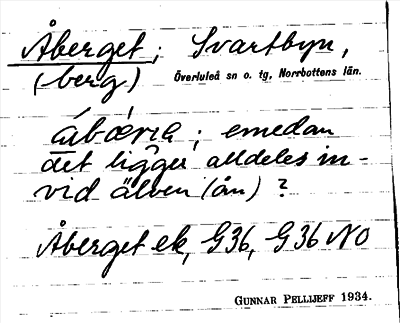 Åberget; Svartbyn,
(-berg) Överluleå sn o. tg, Norrbottens län.
emedan
det ligger alldeles in-
vid älven (ån)?
Åberget ek, G36, G36 NO
GUNNAR PELLIJEFF 1934.